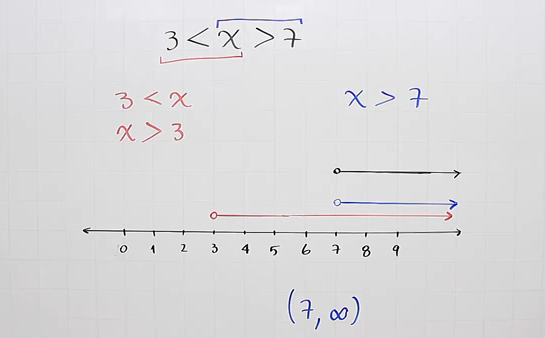 3 < x > 7
3 < x
x > 3
x > 7
0 1 2 3 4 5 6 7 8 9
(7, ∞)